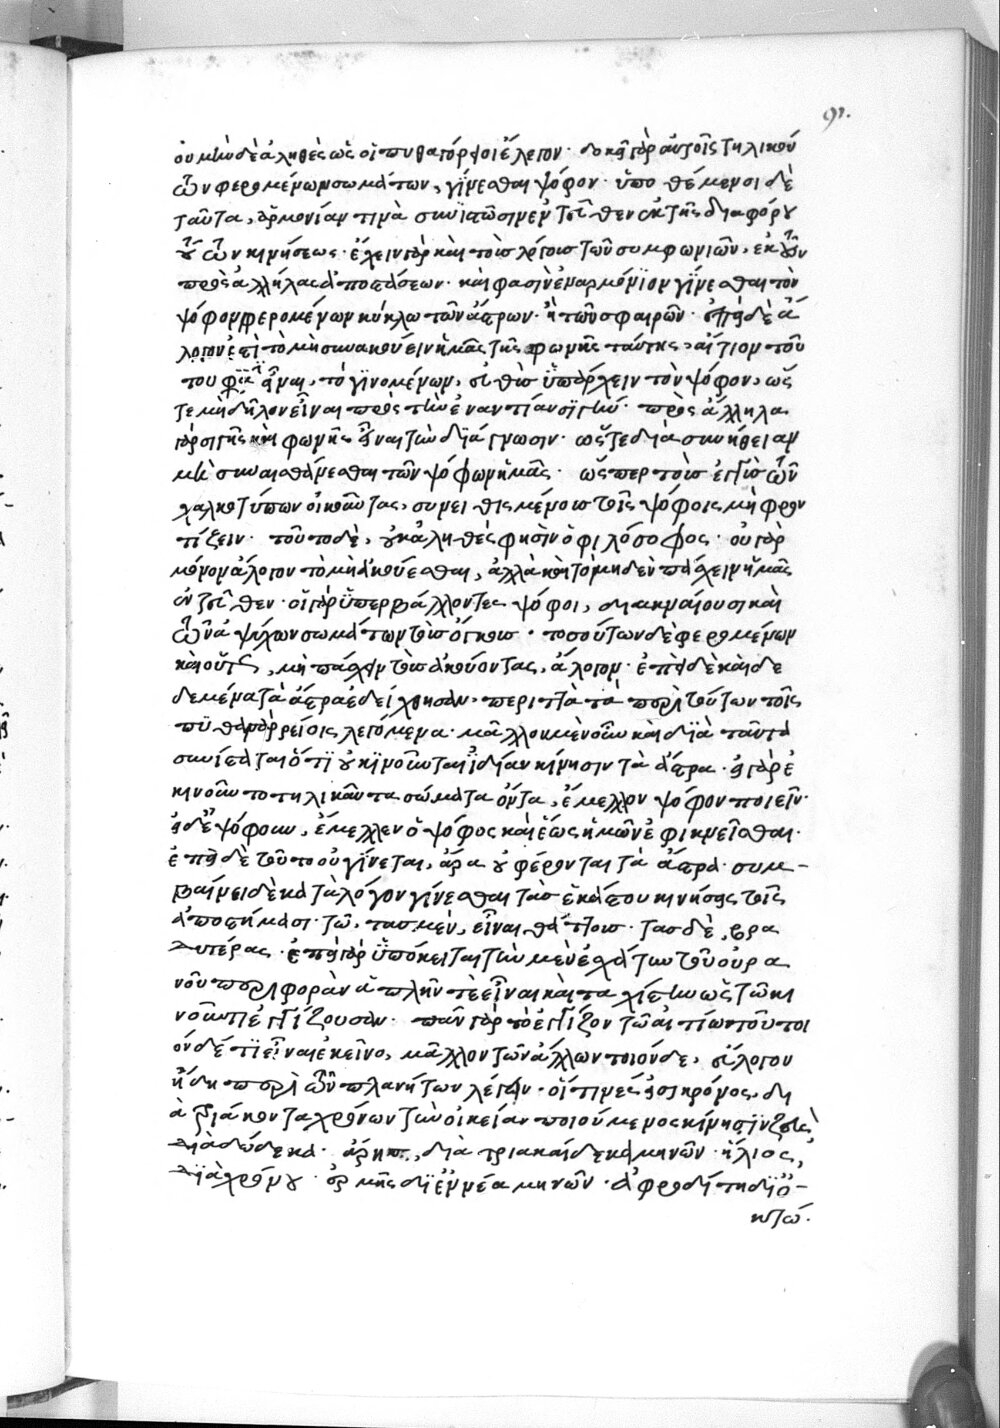 91.
οὐ μὴν δὲ ἀληθὲς ὡς οἱ πυθαγόρειοι ἔλεγον· δοκεῖ γὰρ αὐτοῖς τηλικούτων
φερομένων σωμάτων, γίνεσθαι ψόφον· ὑποθέμενοι δὲ
ταῦτα, ἁρμονίαν τινὰ συνιστῶσιν ἐντεῦθεν ἐκ τῆς διαφόρου
τούτων κινήσεως· ἔχειν γὰρ καὶ τοῖς λόγοις τῶν συμφωνιῶν, ἐκ τῶν
πρὸς ἀλλήλας ἀποστάσεων· καὶ φασὶν ἐναρμόνιον γίνεσθαι τὸν
ψόφον φερομένων κύκλω τῶν ἄστρων· ἢ τῶν σφαιρῶν· ἐπεὶ δὲ ἄ
λογόν ἐστι τὸ μὴ συνακούειν ἡμᾶς τῆς φωνῆς ταύτης, αἴτιον τού
του φασὶν εἶναι, τὸ γινομένων, εὐθὺς ὑπάρχειν τὸν ψόφον, ὥς
τε μὴ δῆλον εἶναι πρὸς τὴν ἐναντίαν σιγήν· πρὸς ἄλληλα
γὰρ σιγῆς καὶ φωνῆς εἶναι τὴν διάγνωσιν· ὥστε διὰ συνήθειαν
μὴ συναισθάνεσθαι τῶν ψόφων ἡμᾶς· ὥσπερ τοῖς ἐγγὺς τῶν
χαλκοτύπων οἰκοῦντας, συνειθισμένοις τοῖς ψόφοις μὴ φρον
τίζειν· τοῦτο δὲ, οὐκ ἀληθές φησὶν ὁ φιλόσοφος· οὐ γὰρ
μόνον ἄλογον τὸ μὴ ἀκούεσθαι, ἀλλὰ καὶ τὸ μηδὲν πάσχειν ἡμᾶς
ἐντεῦθεν· οἱ γὰρ ὑπερβάλλοντες ψόφοι, διακναίουσι καὶ
τῶν ἀψύχων σωμάτων τοὺς ὄγκους· τοσούτων δὲ φερομένων
καὶ οὕτως, μὴ πάσχειν τοὺς ἀκούοντας, ἄλογον· ἐπεὶ δὲ καὶ δε
δεμένα τὰ ἄστρα ἐδείχθησαν, περιττὰ τὰ περὶ τούτων τοῖς
πυθαγορείοις λεγόμενα· μᾶλλον μὲν οὖν καὶ διὰ ταῦτα
συνίσταται ὅτι οὐ κινοῦνται ἰδίαν κίνησιν τὰ ἄστρα· εἰ γὰρ ἐ
κινοῦντο τηλικαῦτα σώματα ὄντα, ἔμελλον ψόφον ποιεῖν·
εἰ δὲ ψόφουν, ἔμελλεν ὁ ψόφος καὶ ἕως ἡμῶν ἐφικνεῖσθαι·
ἐπεὶ δὲ τοῦτο οὐ γίνεται, ἄρα οὐ φέρονται τὰ ἄστρα· συμ-
βαίνει δὲ κατὰ λόγον γίνεσθαι τὰς ἑκάστου κινήσεις τοῖς
ἀποστήμασι· τῶ, τὰς μὲν, εἶναι θάττους· τὰς δὲ, βρα
δυτέρας· ἐπεὶ γὰρ ὑπόκειται τὴν μὲν ἐσχάτην τοῦ οὐρα
νοῦ περιφορὰν ἁπλῆν τε εἶναι καὶ ταχίστην ὡς τῶ κι
νοῦντι ἐγγίζουσαν· πᾶν γὰρ τὸ ἐγγίζον τῶ αἰτίω τοῦ τοι
όνδέ τι εἶναι ἐκεῖνο, μᾶλλον τῶν ἄλλων τοιόνδε, εὔλογον
ἤδη περὶ τῶν πλανήτων λέγειν· οἵτινές εἰσι κρόνος, δι
ὰ τριάκοντα χρόνων τὴν οἰκείαν ποιούμενος κίνησιν ζεὺς
διὰ δώδεκα· ἄρης, διὰ τριακαίδεκα μηνῶν· ἥλιος,
διὰ χρόνου· ἑρμῆς δι ἐννέα μηνῶν· ἀφροδίτη δι ὀ-
κτώ·